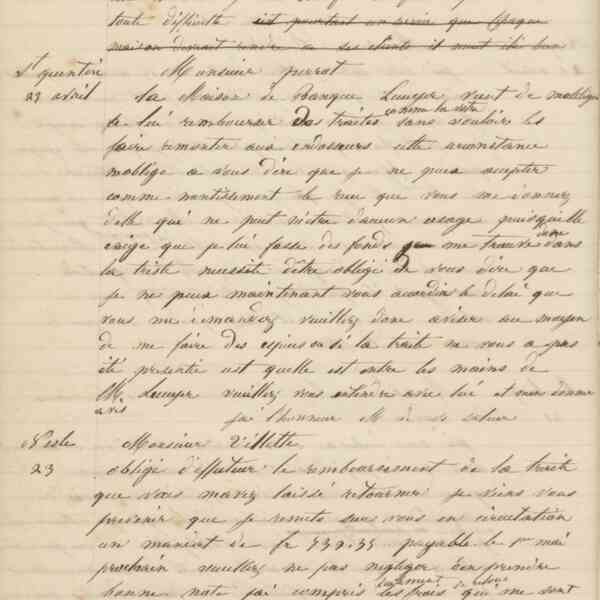 toute difficulté est pourtant un service que chaque
maison devrait rendre a ses clients il eut été bon
St quentin Monsieur pierrot
23 avril La Maison de Banque Lecuyer vient de mobliger
de lui rembourser des traites comme la votre sans vouloir les
faire remonter aux endosseurs cette circonstance
moblige a vous dire que je ne puis accepter
comme nantissement le que vous me donnez
delle qui ne peut mêtre daucun usage puisquelle
exige que je lui fasse des fonds me trouve donc dans
la triste necessité dêtre obligé de vous dire que
je ne peux maintenant vous accorder le delai que
vous me demandez veuillez donc aviser au moyen
de me faire des especes si la traite ne vous a pas
été presenté est quelle est entre les mains de
M. Lecuyer veuillez vous entendre avec lui et men donner
avis jai lhonneur M de v saluer
Nesle Monsieur Villette
23 obligé d'effectuer le remboursement de la traite
que vous mavez laissé retourner je viens vous
prevenir que je remets sur vous en circulation
un mandat de fr 739.55 payable le 1er mai
prochain veuillez ne pas negliger den prendre
bonne note jai compris les frais de retour qui me sont